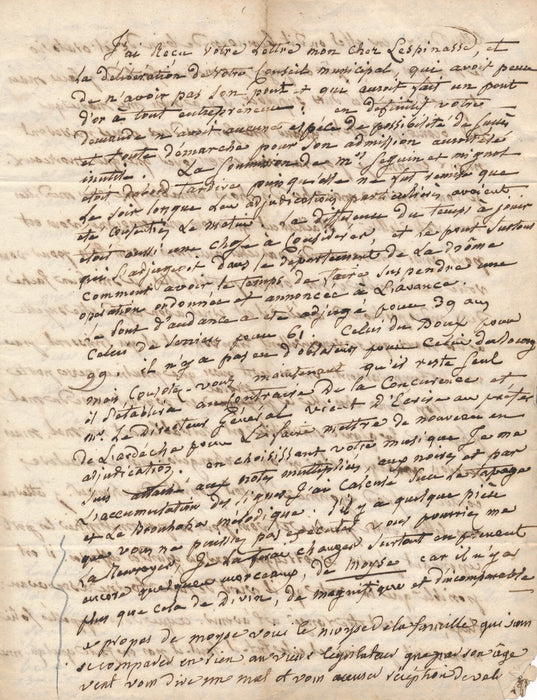 J'ai Recu votre lettre mon cher Lespinasse, et
La déliberation de votre Conseil municipal, qui avoit peur
de n'avoir pas son pont et qui auroit fait un pont
d'or à tout entrepreneur : en definitif votre
demande n'avoit aucune espèce de possibilité de succès
et toute demarche pour son admission auroit été
inutile. La soumission de mrs seguin et mignot
etoit d'abord tardive puisqu'elle ne fut remise que
Le soir lorsque Les adjudications particulières avoient
eté ouvertes Le matin. La difference du temps à jouir
etoit aussi une chose à Considérer, et le pont surtout
qui s'adjugeoit dans le departement de La drôme
comment avoir le temps de faire suspendre une
opération ordonnée et annoncée à L'avance.
Le pont d'andance a eté adjugé pour 39 ans
Celui de Serrières pour 61. Celui du Doux pour
99. il n'y a pas eu d'obstacle pour Celui du
mais Consolez-vous maintenant qu'il reste seul
il s'etablira au Contraire de la Concurence et
Mr. Le directeur Général vient d'Ecrire au préfet
de Lardeche pour Le faire mettre de nouveau en
adjudication. en choisissant votre musique Je me
suis attaché aux notes multipliées aux noires et par
L'accumulation des lignes J'ai Calculé Sur le tapage
et Le Brouhaha melodique. s'il y a quelque pièce
que vous ne puissiez pas executer vous pourriez me
La Renvoyer, Je La ferai changer surtout en prenant
encore quelques morceaux, de Moyse car il n'y a
plus que cela de divin, de magnifique et d'incomparable
à propos de moyse vous le moyse de la famille qui sans
se comparer en rien au vieux législateur que par son age
veut vous dire un mot et vous accuser réception de votre